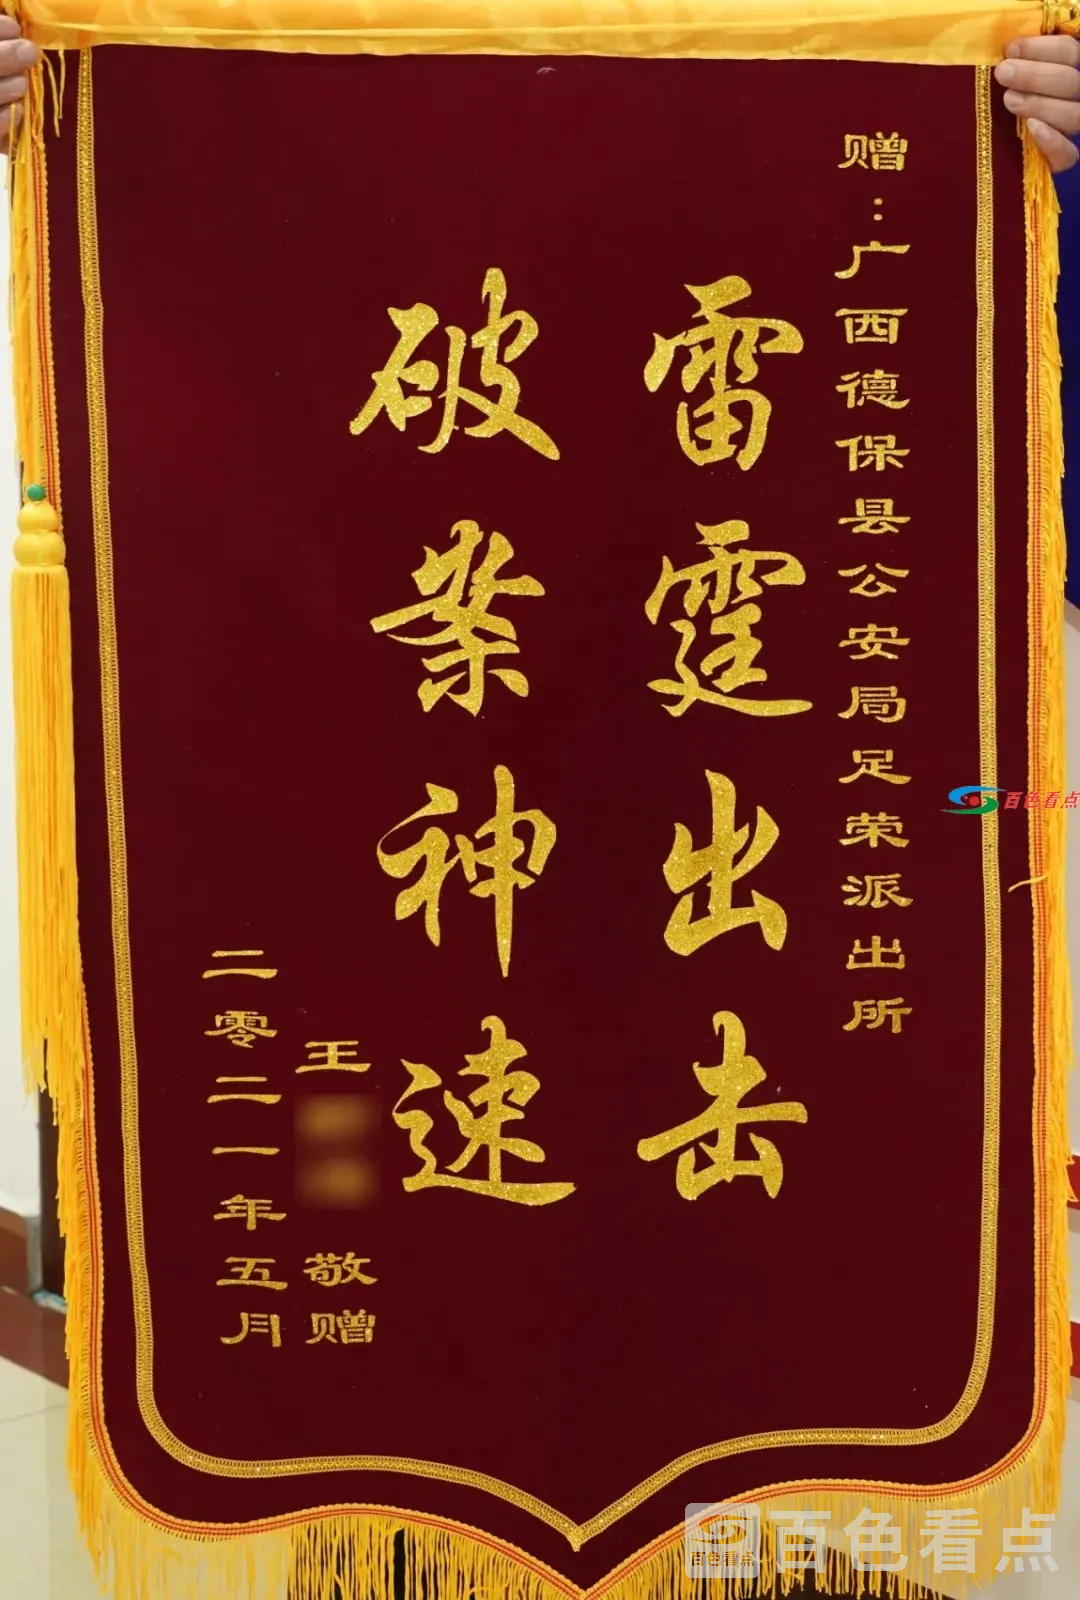 赠:广西德保县公安局足荣派出所
雷霆出击
破案神速
王
敬赠
二零二一年五月
百色看点
百色看点
百色看点